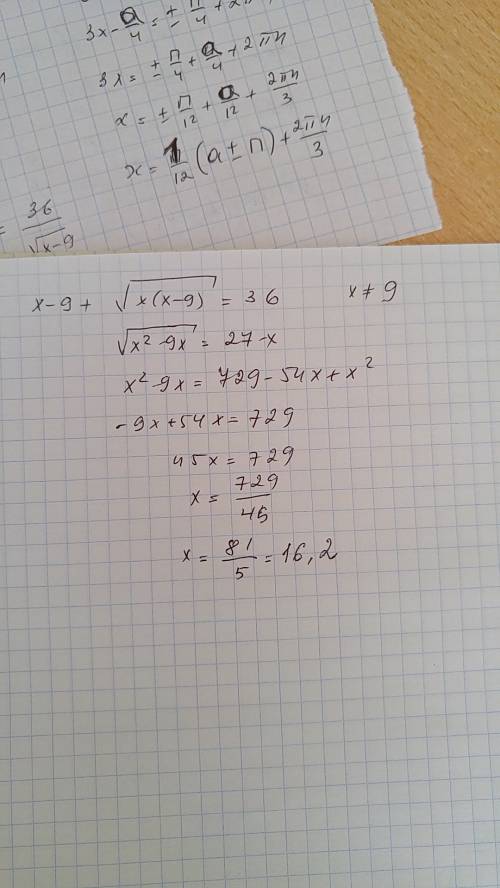 3x - a/4 = ± п/4 + 2п
3x = ± п/4 + a/4 + 2πn
x = ± п/12 + a/12 + 2πn/3
x = 1/12 (a ± п) + 2πn/3
= 36/√x-9
x-9 + √x(x-9) = 36 x ≠ 9
√x² - 9x = 27 - x
x² - 9x = 729 - 54x + x²
- 9x + 54x = 729
45x = 729
x = 729/45
x = 81/5 = 16,2